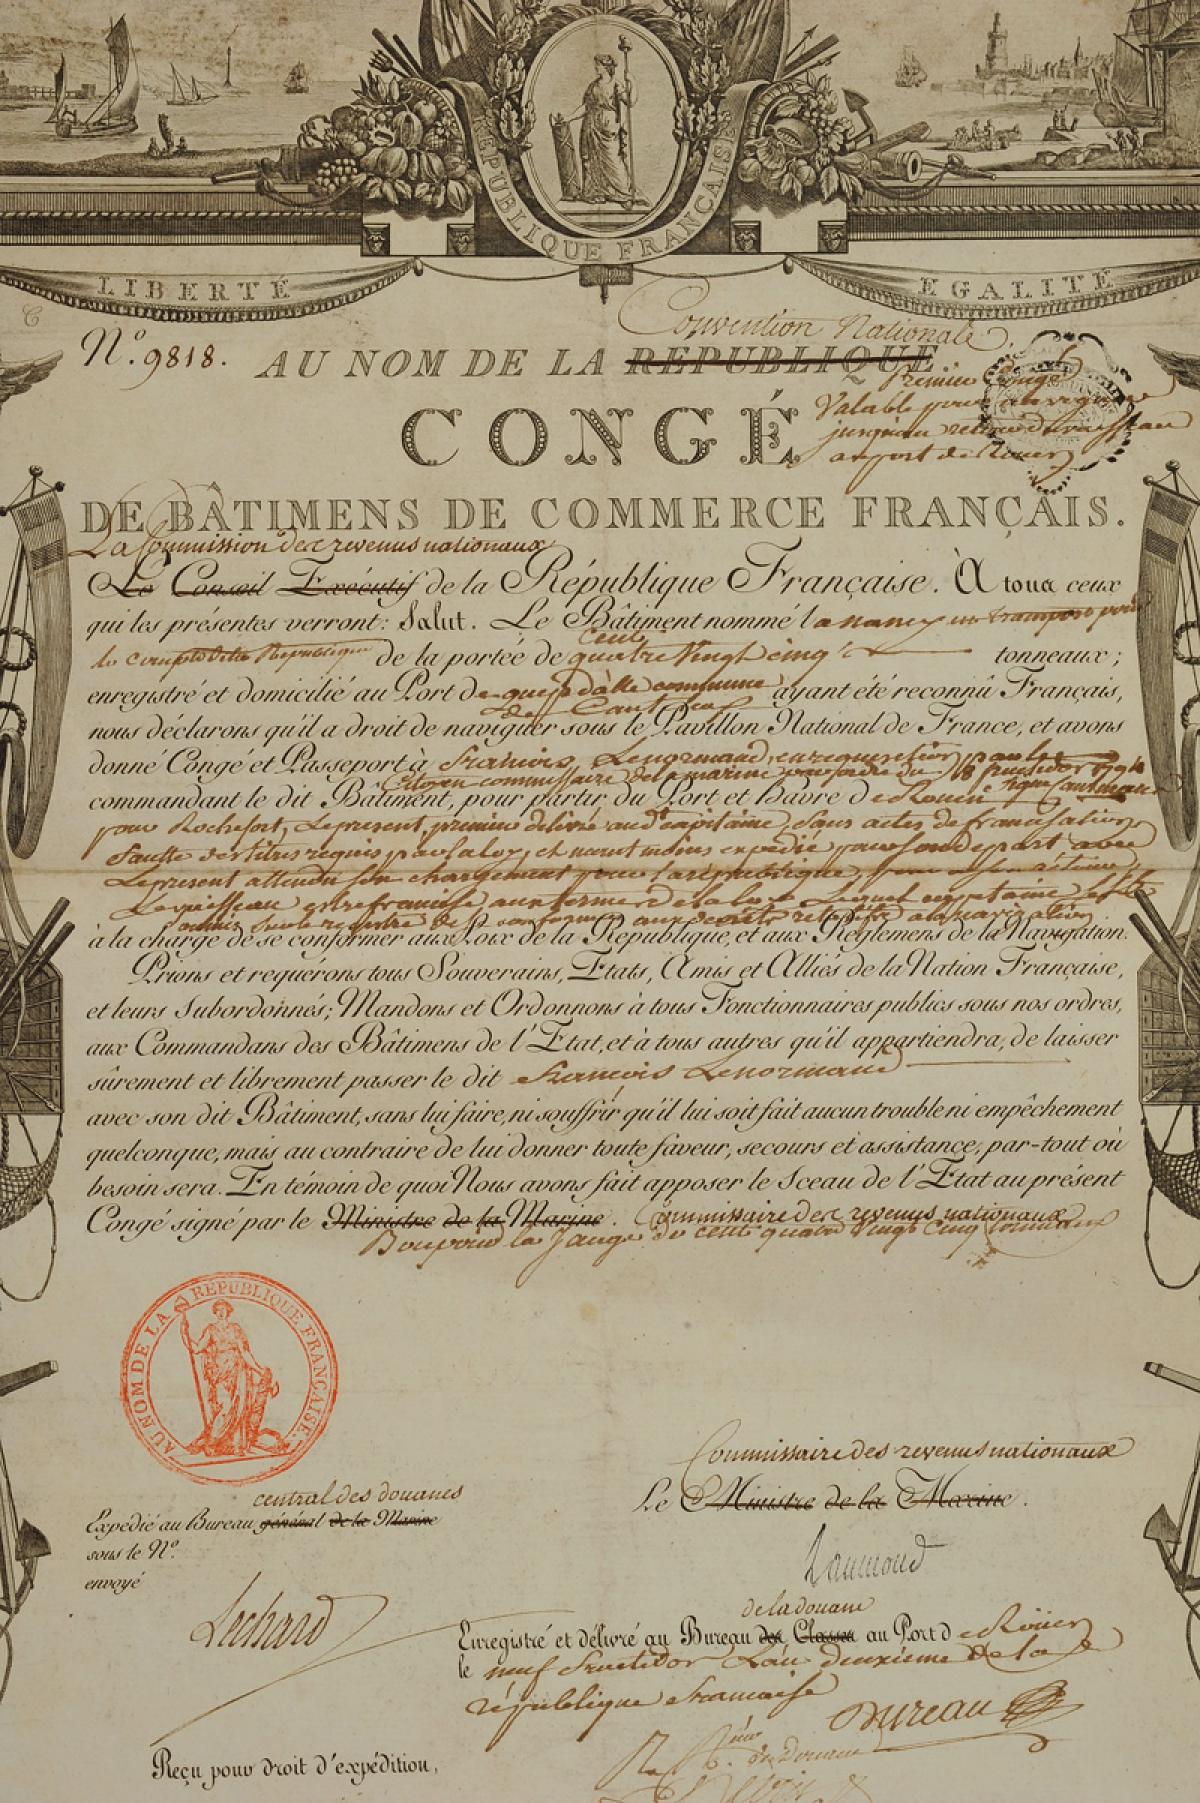 RÉPUBLIQUE FRANÇAISE
LIBERTÉ
EGALITÉ
Convention Nationale.
N.º 9818. AU NOM DE LA REPUBLIQUE.
Premier Congé
Valable pour un voyage
jusqu'au retour du vaisseau
au port de Rouen
CONGÉ
DE BÂTIMENS DE COMMERCE FRANÇAIS.
La Commission des revenus nationaux
Le Conseil Exécutif de la République Française. À tous ceux
qui les présentes verront: Salut. Le Bâtiment nommé la nancy un transport pour
le compte de la République de la portée de cent quatre Vingt cinq tonneaux;
enregistré et domicilié au Port de commune ayant été reconnû Français,
de
nous déclarons qu'il a droit de naviguer sous le Pavillon National de France, et avons
donné Congé et Passeport à François Lenormand, en requisition par le
Citoyen commissaire de la marine 18
commandant le dit Bâtiment, pour partir du Port et Havre de Rouen
pour Rochefort, Le present, premier délivré au dt capitaine, Sans actes de francisation
faute des titres requis par la loy, et neant moins expedié pour son depart avec
Le present attendu son chargement pour la republique,
Le vaisseau
à la charge de se conformer aux Loix de la République, et aux Réglemens de la Navigation.
Prions et requérons tous Souverains, Etats, Amis et Alliés de la Nation Française,
et leurs Subordonnés; Mandons et Ordonnons à tous Fonctionnaires publics sous nos ordres,
aux Commandans des Bâtimens de l'Etat, et à tous autres qu'il appartiendra, de laisser
sûrement et librement passer le dit François Lenormand
avec son dit Bâtiment, sans lui faire, ni souffrir qu'il lui soit fait aucun trouble ni empêchement
quelconque, mais au contraire de lui donner toute faveur, secours et assistance, par-tout où
besoin sera. En témoin de quoi Nous avons fait apposer le Sceau de l'Etat au présent
Congé signé par le Ministre de la Marine. Commissaire des revenus nationaux
Bon pour la Jauge de cent quatre Vingt Cinq tonneaux
AU NOM DE LA REPUBLIQUE FRANÇAISE.
Commissaire des revenus nationaux
Le Ministre de la Marine.
central des douanes
Expedié au Bureau général de la Marine
sous le Nº.
envoyé
de la douane
Enregistré et délivré au Bureau des Classes au Port de Rouen
le neuf fructidor L'an deuxieme de la
république francaise
Bureau
Reçu pour droit d'expédition,